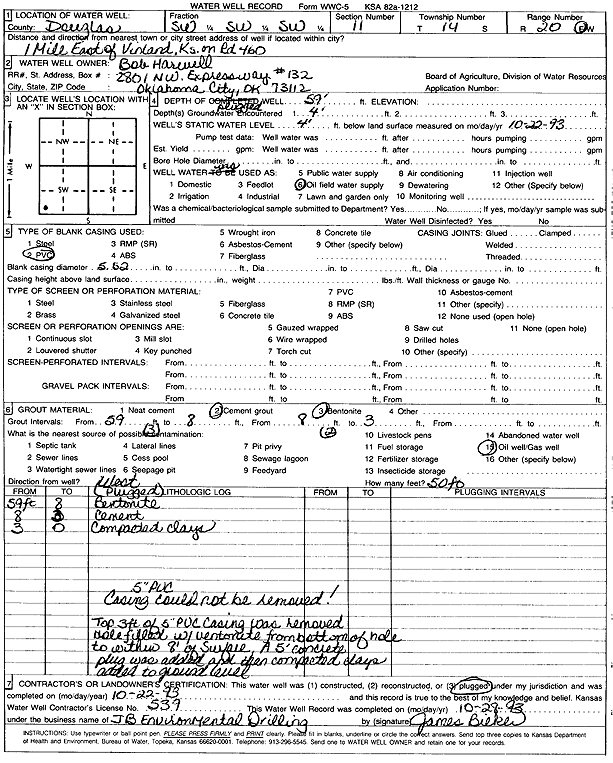 WATER WELL RECORD Form WWC-5 KSA 82a-1212
1 LOCATION OF WATER WELL: Fraction Section Number Township Number Range Number
County: Douglas SW ¼ SW ¼ SW ¼ 11 T 14 S R 20 E/W
Distance and direction from nearest town or city street address of well if located within city?
1 Mile East of Vinland, Ks. on Rd 460
2 WATER WELL OWNER: Bob Harwell
RR#, St. Address, Box # : 2801 N.W. Expressway #132 Board of Agriculture, Division of Water Resources
City, State, ZIP Code : Oklahoma City, OK 73112 Application Number:
3 LOCATE WELL'S LOCATION WITH AN "X" IN SECTION BOX:
N
NW NE
W E
SW SE
S
1 Mile
4 DEPTH OF COMPLETED WELL 59' ft. ELEVATION:
plugged
Depth(s) Groundwater Encountered 1. 4' ft. 2. ft. 3. ft.
WELL'S STATIC WATER LEVEL 4' ft. below land surface measured on mo/day/yr 10-22-93
Pump test data: Well water was ft. after hours pumping gpm
Est. Yield gpm: Well water was ft. after hours pumping gpm
Bore Hole Diameter in. to ft., and in. to ft.
WELL WATER TO BE USED AS: 5 Public water supply 8 Air conditioning 11 Injection well
was
1 Domestic 3 Feedlot 6 Oil field water supply 9 Dewatering 12 Other (Specify below)
2 Irrigation 4 Industrial 7 Lawn and garden only 10 Monitoring well
Was a chemical/bacteriological sample submitted to Department? Yes No ; If yes, mo/day/yr sample was submitted Water Well Disinfected? Yes No
5 TYPE OF BLANK CASING USED: 5 Wrought iron 8 Concrete tile CASING JOINTS: Glued Clamped
1 Steel 3 RMP (SR) 6 Asbestos-Cement 9 Other (specify below) Welded
2 PVC 4 ABS 7 Fiberglass Threaded
Blank casing diameter 5.52 in. to ft., Dia in. to ft., Dia in. to ft.
Casing height above land surface in., weight lbs./ft. Wall thickness or gauge No.
TYPE OF SCREEN OR PERFORATION MATERIAL: 7 PVC 10 Asbestos-cement
1 Steel 3 Stainless steel 5 Fiberglass 8 RMP (SR) 11 Other (specify)
2 Brass 4 Galvanized steel 6 Concrete tile 9 ABS 12 None used (open hole)
SCREEN OR PERFORATION OPENINGS ARE: 5 Gauzed wrapped 8 Saw cut 11 None (open hole)
1 Continuous slot 3 Mill slot 6 Wire wrapped 9 Drilled holes
2 Louvered shutter 4 Key punched 7 Torch cut 10 Other (specify)
SCREEN-PERFORATED INTERVALS: From ft. to ft., From ft. to ft.
From ft. to ft., From ft. to ft.
GRAVEL PACK INTERVALS: From ft. to ft., From ft. to ft.
From ft. to ft., From ft. to ft.
6 GROUT MATERIAL: 1 Neat cement 2 Cement grout 3 Bentonite 4 Other
Grout Intervals: From 59 ft. to 8 ft., From 8 ft. to 3 ft., From ft. to ft.
(3) (2)
What is the nearest source of possible contamination: 10 Livestock pens 14 Abandoned water well
1 Septic tank 4 Lateral lines 7 Pit privy 11 Fuel storage 15 Oil well/Gas well
2 Sewer lines 5 Cess pool 8 Sewage lagoon 12 Fertilizer storage 16 Other (specify below)
3 Watertight sewer lines 6 Seepage pit 9 Feedyard 13 Insecticide storage
Direction from well? West How many feet? 50 ft
FROM TO (Plugged) LITHOLOGIC LOG FROM TO PLUGGING INTERVALS
59ft 8 Bentonite
8 3 Cement
3 0 Compacted clays
5" PVC
Casing could not be removed!
Top 3ft of 5" PVC Casing was removed
Hole filled w/ bentonite from bottom of hole
to within 8' of surface. A 5' concrete
plug was added and then compacted clays
added to ground level
7 CONTRACTOR'S OR LANDOWNER'S CERTIFICATION: This water well was (1) constructed, (2) reconstructed, or (3) plugged under my jurisdiction and was
completed on (mo/day/year) 10-22-93 and this record is true to the best of my knowledge and belief. Kansas
Water Well Contractor's License No. 539 This Water Well Record was completed on (mo/day/yr) 10-29-93
under the business name of JB Environmental Drilling by (signature) James Bieker
INSTRUCTIONS: Use typewriter or ball point pen. PLEASE PRESS FIRMLY and PRINT clearly. Please fill in blanks, underline or circle the correct answers. Send top three copies to Kansas Department
of Health and Environment, Bureau of Water, Topeka, Kansas 66620-0001. Telephone: 913-296-5545. Send one to WATER WELL OWNER and retain one for your records.